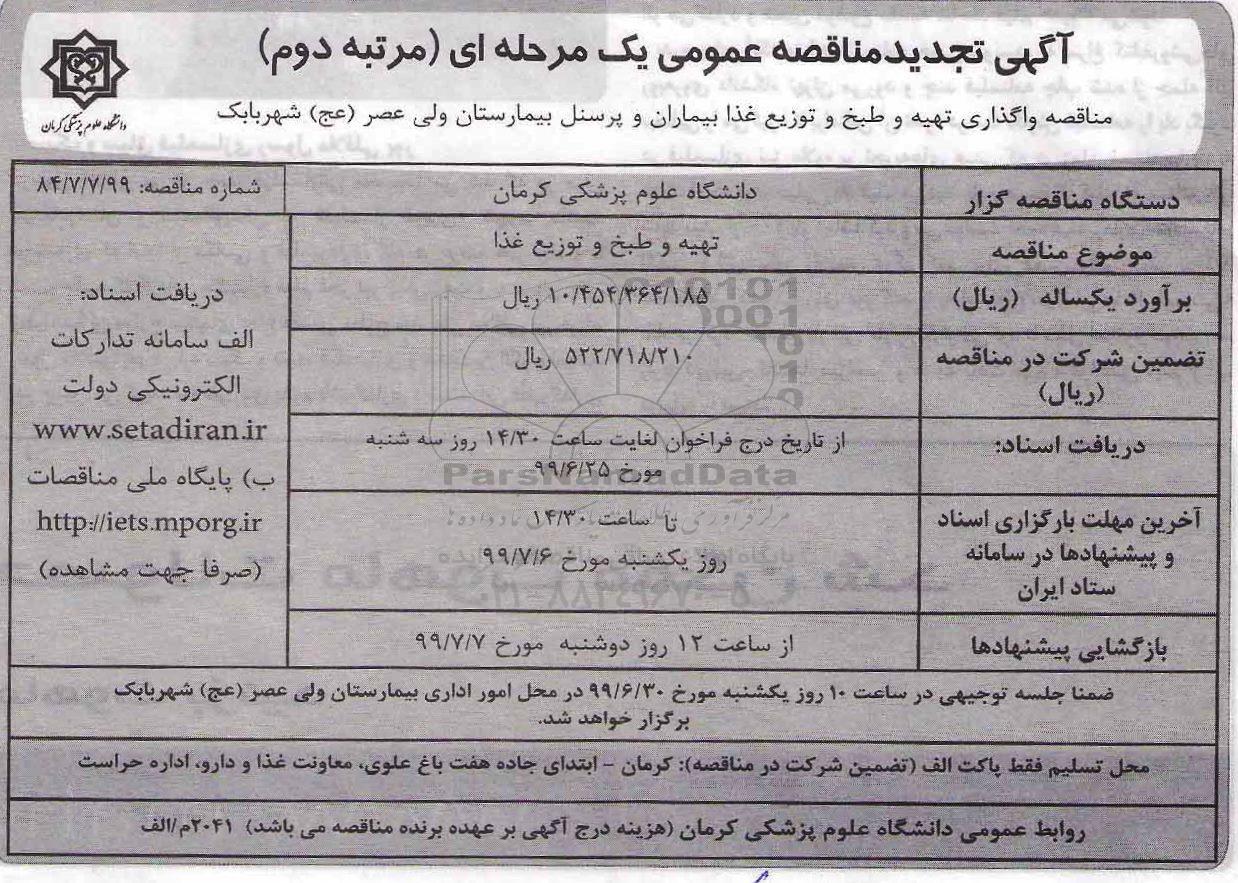 آگهی تجدیدمناقصه عمومی یک مرحله ای (مرتبه دوم)
مناقصه واگذاری تهیه و طبخ و توزیع غذا بیماران و پرسنل بیمارستان ولی عصر (عج) شهربابک
دانشگاه علوم پزشکی کرمان
دستگاه مناقصه گزار
دانشگاه علوم پزشکی کرمان
شماره مناقصه: ۸۴/۷/۷/۹۹
موضوع مناقصه
تهیه و طبخ و توزیع غذا
برآورد یکساله (ریال)
۱۰/۴۵۴/۳۶۴/۱۸۵ ریال
تضمین شرکت در مناقصه
(ریال)
۵۲۲/۷۱۸/۲۱۰ ریال
دریافت اسناد:
از تاریخ درج فراخوان لغایت ساعت ۱۴/۳۰ روز سه شنبه
مورخ ۹۹/۶/۲۵
آخرین مهلت بارگزاری اسناد
و پیشنهادها در سامانه
ستاد ایران
تا ساعت ۱۴/۳۰
روز یکشنبه مورخ ۹۹/۷/۶
بازگشایی پیشنهادها
از ساعت ۱۲ روز دوشنبه مورخ ۹۹/۷/۷
دریافت اسناد:
الف سامانه تدارکات
الکترونیکی دولت
www.setadiran.ir
ب) پایگاه ملی مناقصات
http://iets.mporg.ir
(صرفا جهت مشاهده)
ضمنا جلسه توجیهی در ساعت ۱۰ روز یکشنبه مورخ ۹۹/۶/۳۰ در محل امور اداری بیمارستان ولی عصر (عج) شهربابک
برگزار خواهد شد.
محل تسلیم فقط پاکت الف (تضمین شرکت در مناقصه): کرمان - ابتدای جاده هفت باغ علوی، معاونت غذا و دارو، اداره حراست
روابط عمومی دانشگاه علوم پزشکی کرمان (هزینه درج آگهی بر عهده برنده مناقصه می باشد) ۲۰۴۱م/الف
ParsNamadData